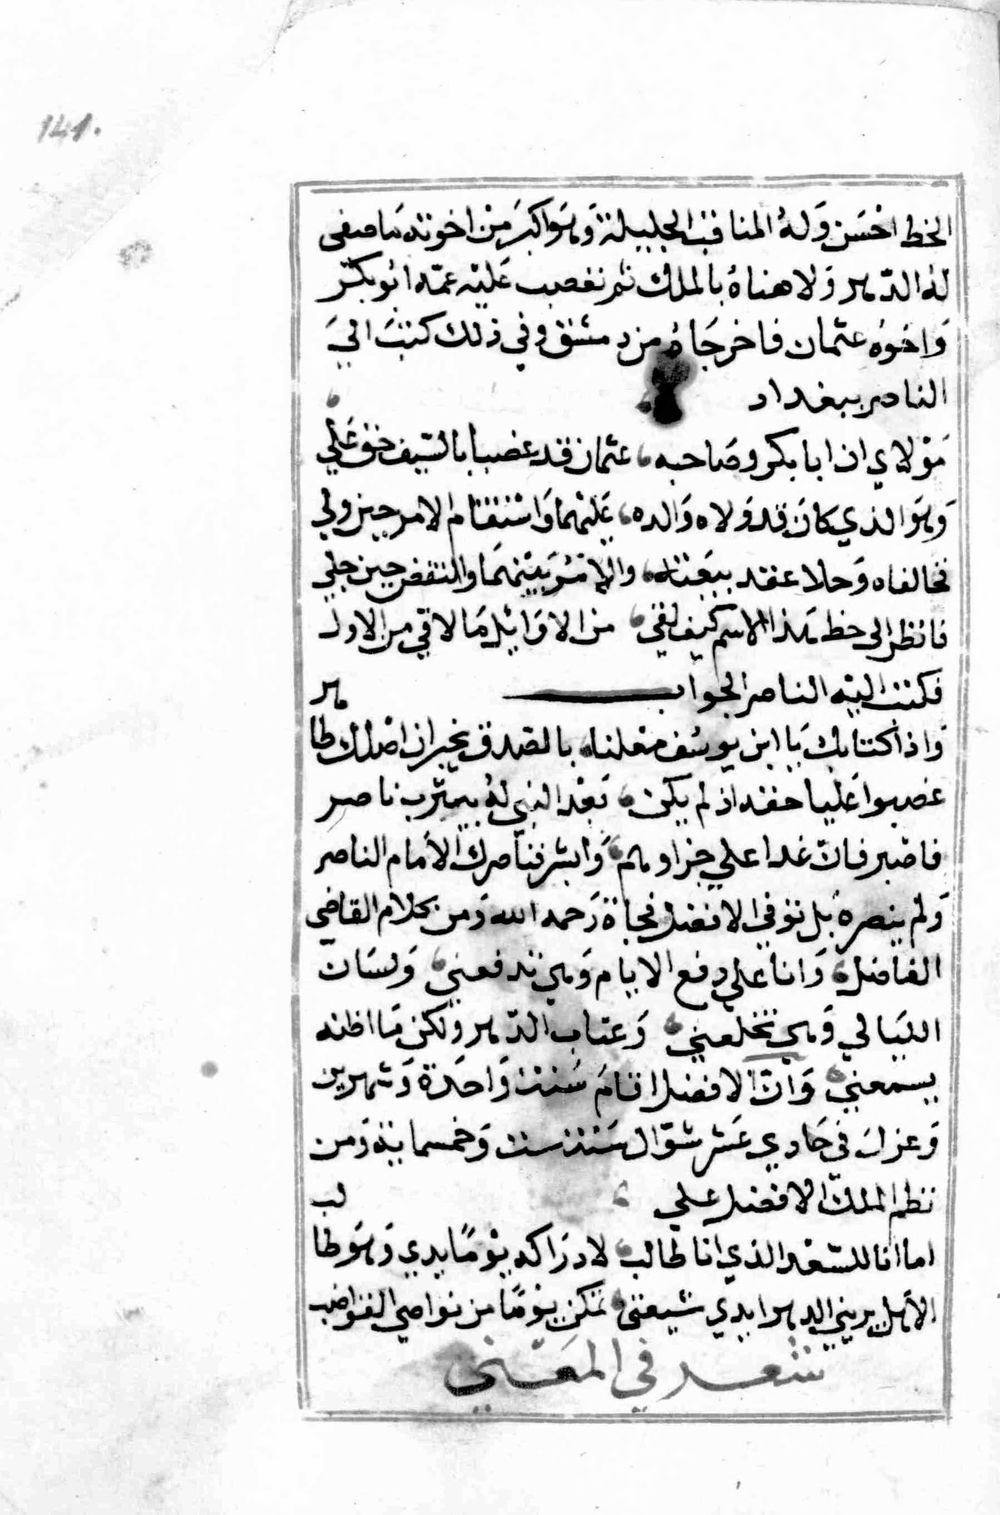 141.
الخط احْسَن وَلهُ المناقب الجليلة وَهوَاكبرَ مِنْ اخوته مَا صفى
لهُ الدّهر وَلا هناهُ بالملك ثم تغصب عَليْه عمّه ابُو بكرْ
وَاخوُه عثمان فاخرجَاهُ من دمشق وفي ذلك كتبَ الىَ
الناصر ببغداد
مَوْلاي ان ابا بكر وصَاحبه، عثمان قد غصبا بالسّيف حق عَلي
وَهوَ الذي كانَ قد وَلاه وَالده، عَليْهمَا وَاسْتقام الامر حين ولي
فخالفاه وَحلا عقد بيعَته، والامْرُ بَيْنهمَا والنقض حين جلي
فانظر الى حظ هَذا الاسم كيف لقي، من الاوَائل مَا لاقي من الاول
فكتب اليْه الناصر الجواب
وَاذا كتابك يَا ابن يوسُف معلنا، بالصدق يخبر ان اصْلك طا هر
غصبوا عَليا حقه اذ لم يكن، بَعْد النبي لهُ بيثرب ناصر
فاصْبر فانّ غدا علي جزاوهم، وَابشر فناصرك الامام الناصر
وَلم ينصرهُ بل توفي الافضل فجاة رَحمه الله وَمن كلام القاضى
الفاضل، وَانا علي دفع الايام وَهي تدفعني، وَلسَان
الليَالي وَهي تخلعني، وَعتاب الدّهر ولكن مَا اظنه
يسمعني، وَانّ الافضل اقامَ سَنة وَاحدَة وَشهرين
وَعزل في حَادي عَشر شوّال سَنة ست وَخمسماية وَمن
نظم الملك الافضل علي
اما انا للسّعْد الذي انا طالب، لادرَاكه يوْمًا يدي وَهوَ طا لب
الاهل يريني الدهر ايدي شيعتي، تمكن يوْمًا من نواصي النواصب
شعر في المعَنى